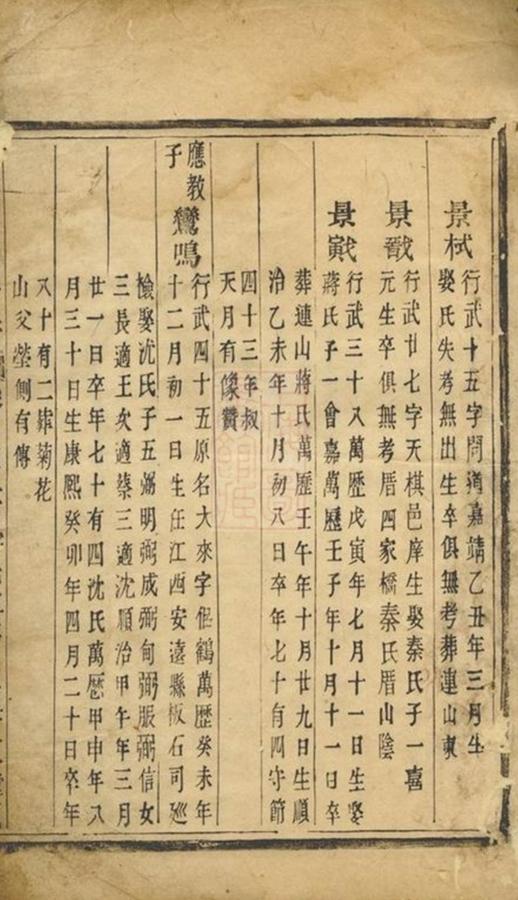 景栻
行武十五字問道嘉靖乙丑年三月生
娶氏失考無出生卒俱無考葬連山東
景戬
行武廿七字天棋邑庠生娶秦氏子一嘉
元生卒俱無考厝四家橋秦氏厝山陰
景戭
行武三十又萬歷戊寅年七月十一日生娶
蔣氏子一會嘉萬歷壬子年十月十一日卒
葬連山蔣氏萬歷壬午年十月廿九日生順
治乙未年十月初八日卒年七十有四守節
四十三年叔
天月有像贊
應教子
鸞鳴
行武四十五原名大來字侶鶴萬歷癸未年
十二月初一日生任江西安遠縣板石司廵
檢娶沈氏子五弼明弼成弼甸弼服弼信女
三長適王次適柒三適沈順治甲午年三月
廿一日卒年七十有四沈氏萬歷甲申年八
月三十日生康熙癸卯年四月二十日卒年
又十有二葬菊花
山父塋側有傳